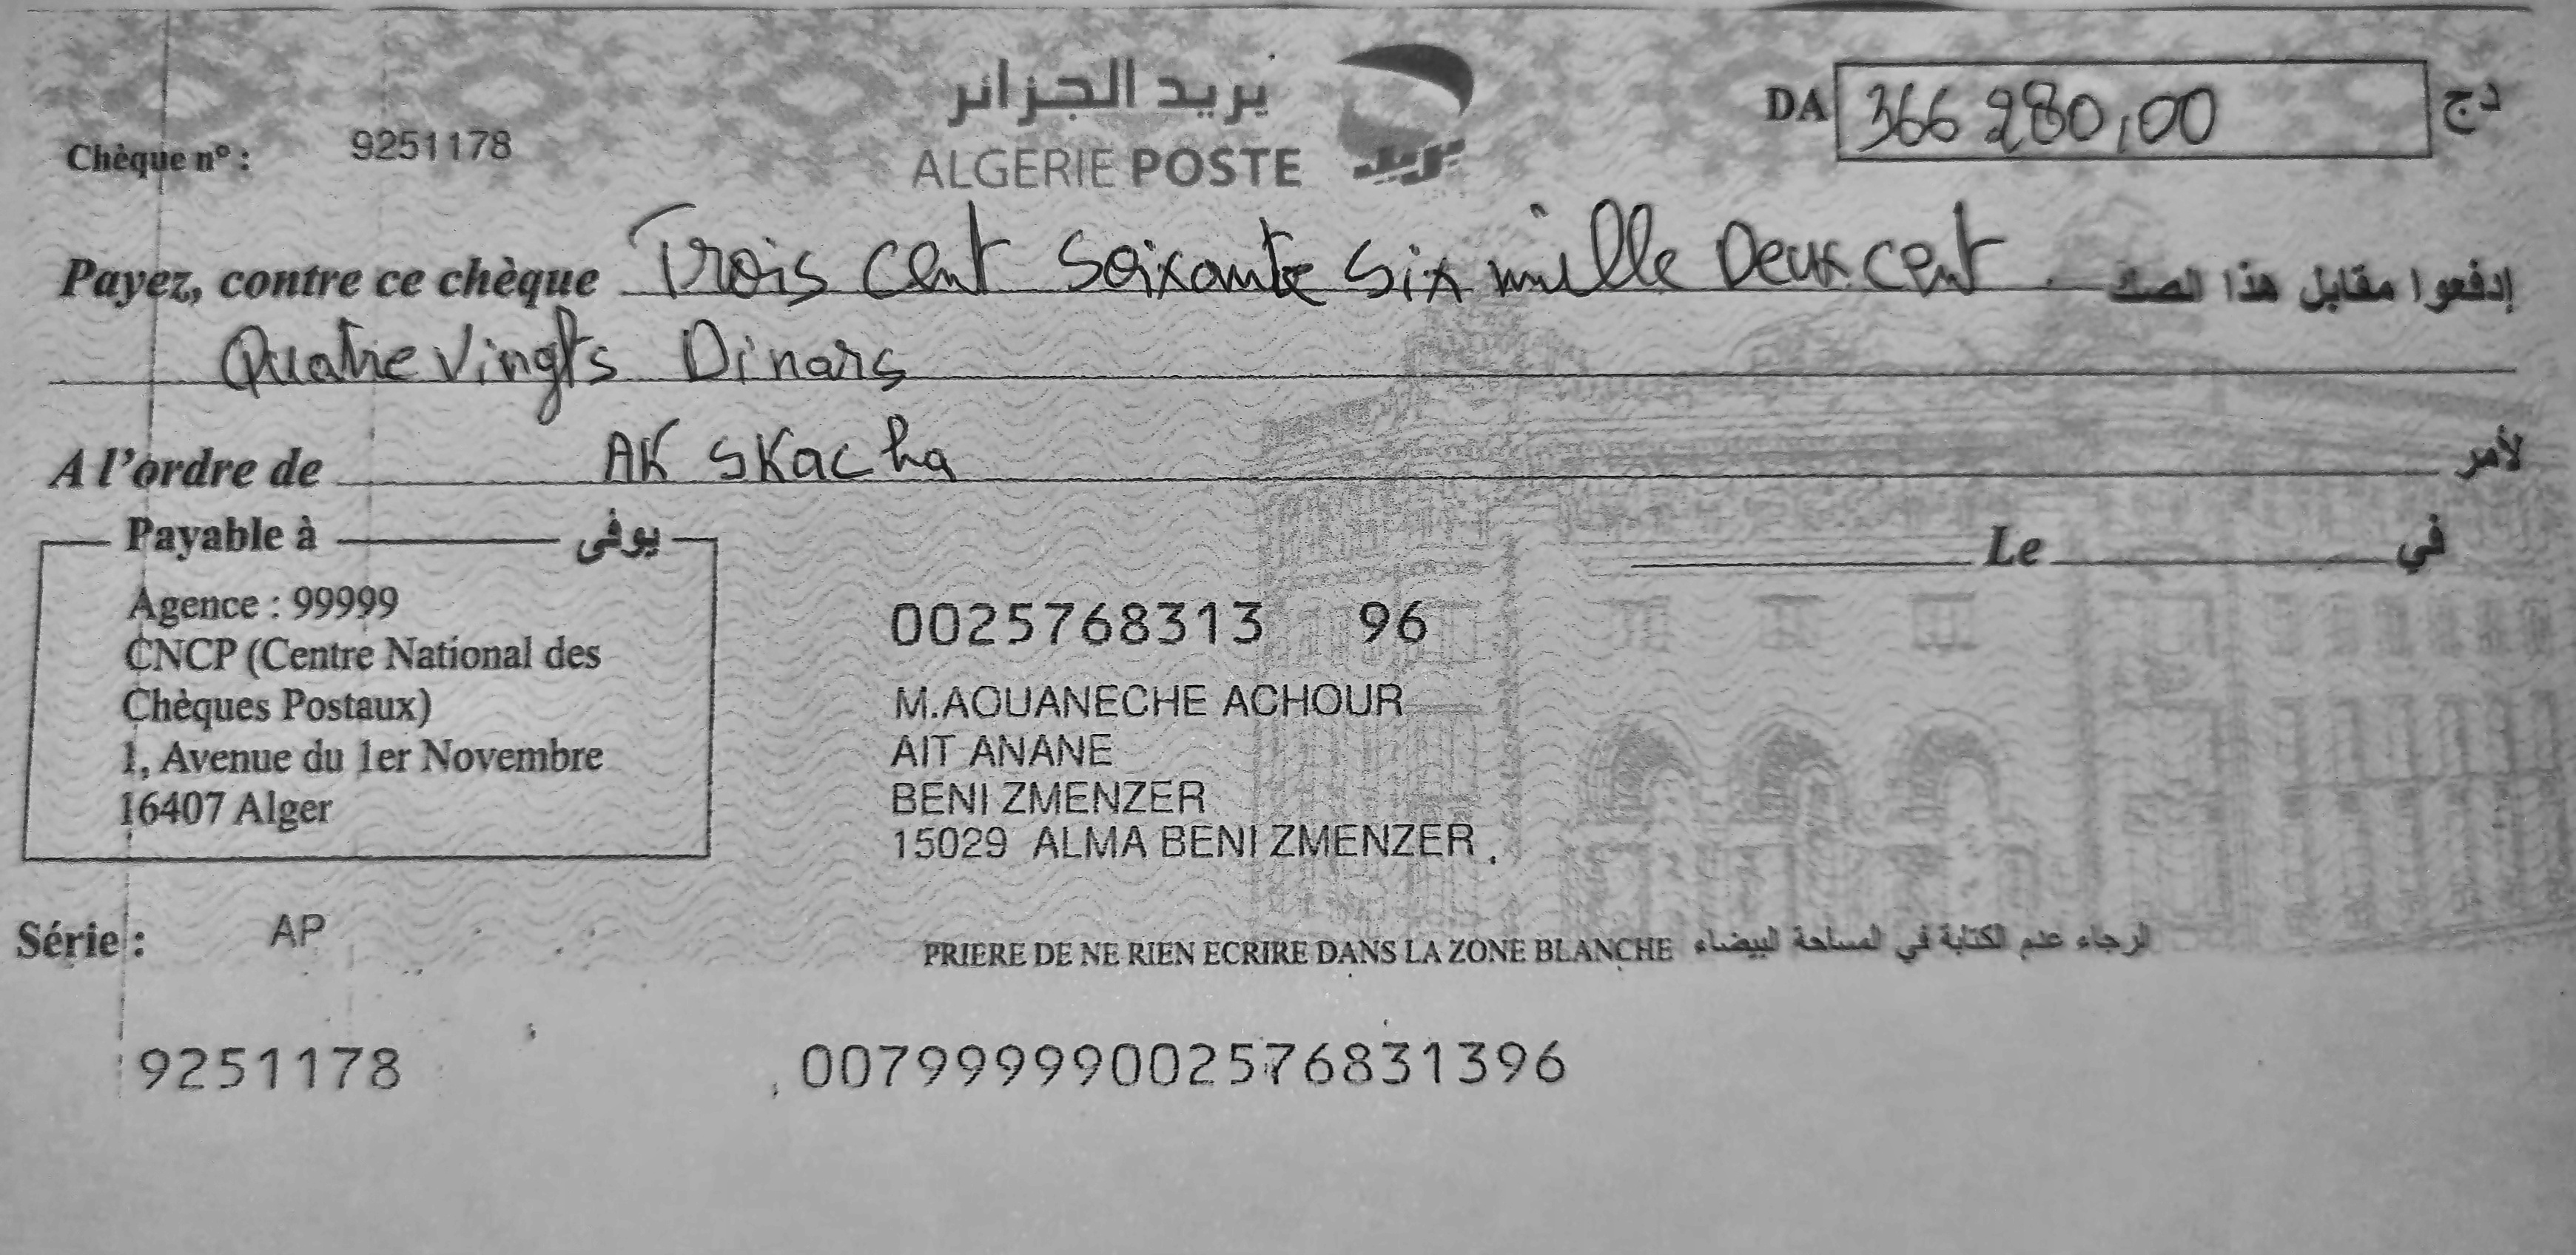 بريد الجزائر
ALGERIE POSTE
بريد
DA 366 280,00 دج
Chèque n° : 9251178
Payez, contre ce chèque Trois cent Soixante Six mille Deux cent إدفعوا مقابل هذا الصك
Quatre Vingts Dinars
A l'ordre de AK SKacha لأمر
Payable à يوفى
Le في
Agence : 99999
CNCP (Centre National des
Chèques Postaux)
1, Avenue du 1er Novembre
16407 Alger
0025768313 96
M.AOUANECHE ACHOUR
AIT ANANE
BENI ZMENZER
15029 ALMA BENI ZMENZER
Série : AP
PRIERE DE NE RIEN ECRIRE DANS LA ZONE BLANCHE الرجاء عدم الكتابة في المساحة البيضاء
9251178 00799999002576831396